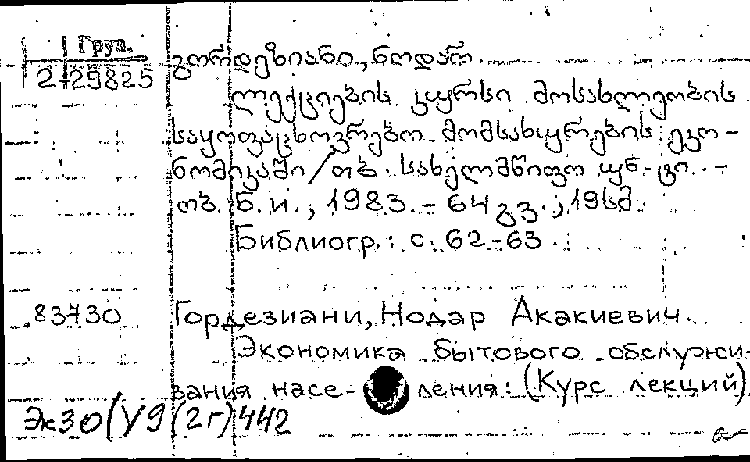 Груз.
2-29825
გორდეზიანი, ნოდარ
ლექციების კურსი მოსახლეობის
საყოფაცხოვრებო მომსახურების ეკო-
ნომიკაში / თბ. სახელმწიფო უნ-ტი. -
თბ. Б.и., 1983. - 64 გვ.; 19სმ.
Библиогр.: с. 62-63
83730
Гордезиани, Нодар Акакиевич.
Экономика бытового обслужи-
вания насе- ления: (Курс лекций)
Эк30(У9(2г)442